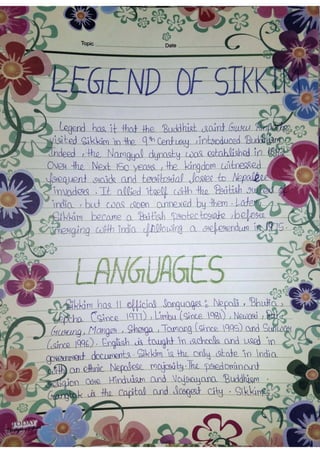 Topic Date
LEGEND OF SIKKIM
Legend has it that the Buddhist saint Guru
visited Sikkim in the 9th Century, introduced Buddhism
indeed, the Namgyal dynasty was established in
Over the Next 150 years, the kingdom witnessed
frequent raids and territorial losses to Nepalese
invaders. It allied itself with the British
india, but was soon annexed by them. Later
Sikkim became a British protectorate before
merging with india following a referendum in 1975.
LANGUAGES
Sikkim has 11 official languages: Nepali, Bhutia,
Lepcha (since 1977), Limbu (since 1981), Newari, Rai,
Gurung, Mangar, Sherpa, Tamang (since 1995) and Sunwar
(since 1996). English is taught in schools and used in
government documents. Sikkim is the only state in India
with an ethnic Nepalese majority. The predominant
religion are Hinduism and Vajrayana Buddhism.
Gangtok is the capital and largest city. Sikkim's